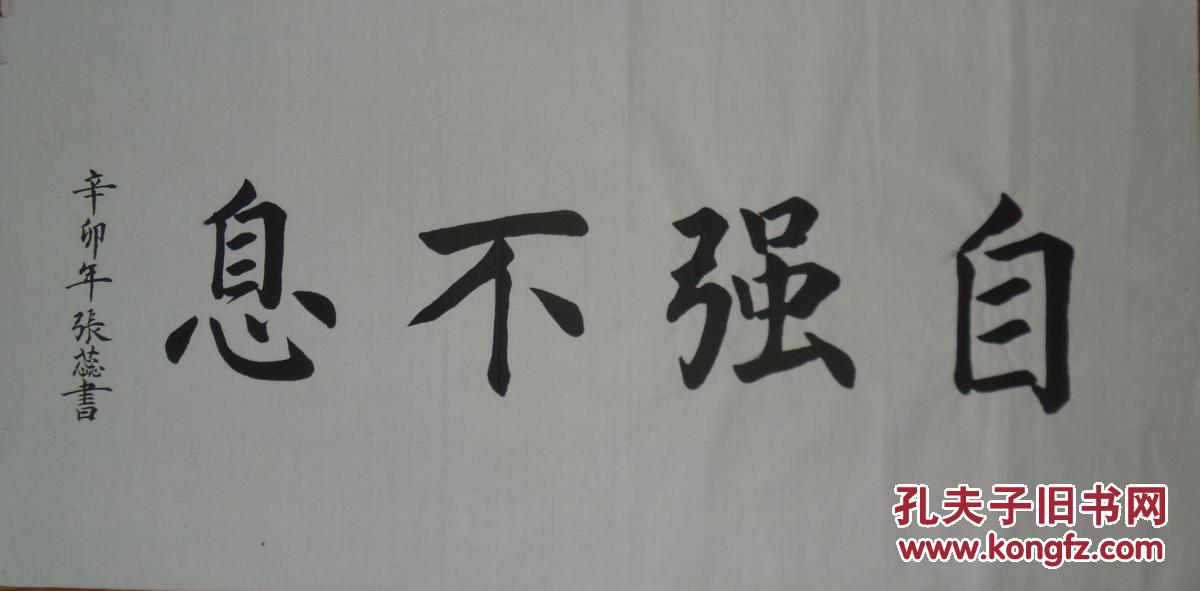 自强不息
辛卯年張蕊書
孔夫子旧书网
www.kongfz.com